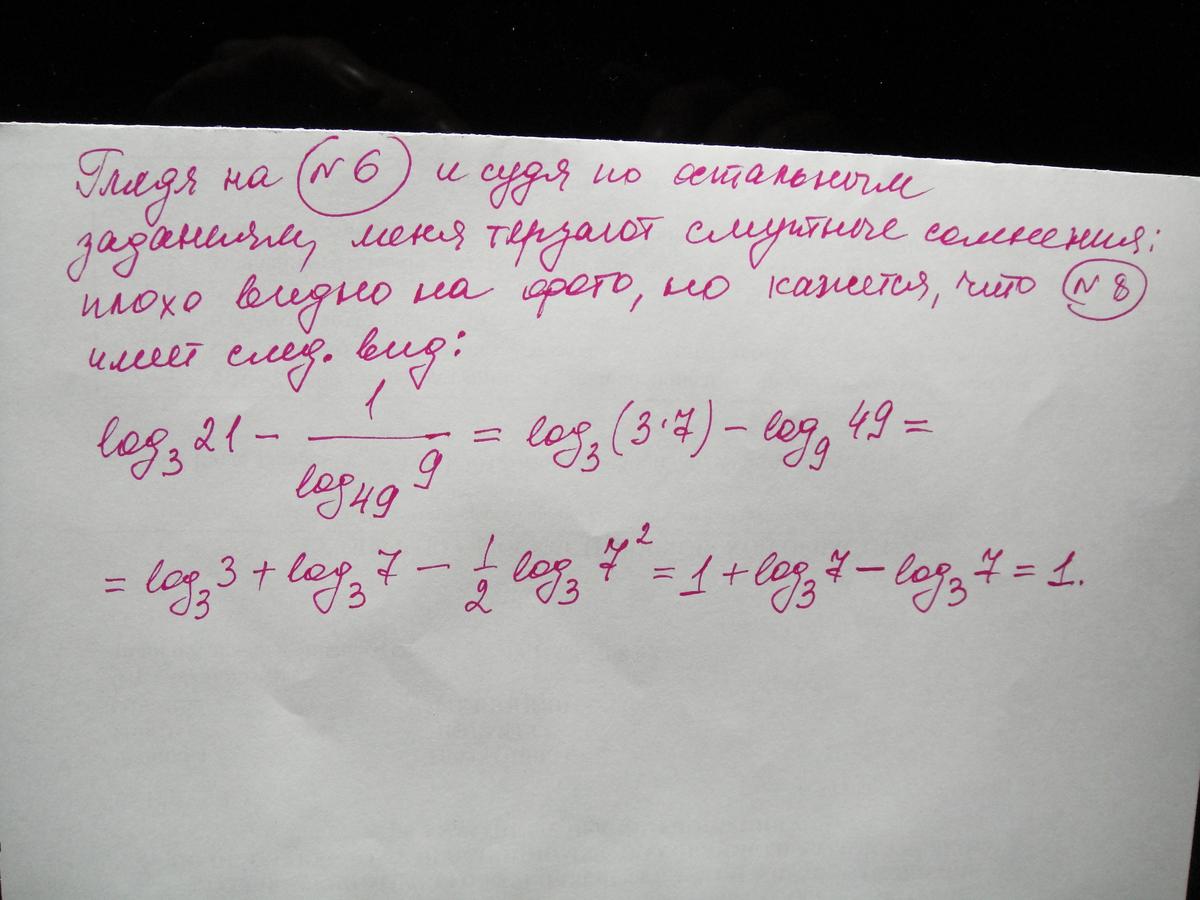 Глядя на №6 и судя по остальным
заданиям, меня терзают смутные сомнения:
плохо видно на фото, но кажется, что №8
имеет след. вид:
log₃21 - 1/log₄₉9 = log₃(3·7) - log₉49 =
= log₃3 + log₃7 - 1/2 log₃7² = 1 + log₃7 - log₃7 = 1.